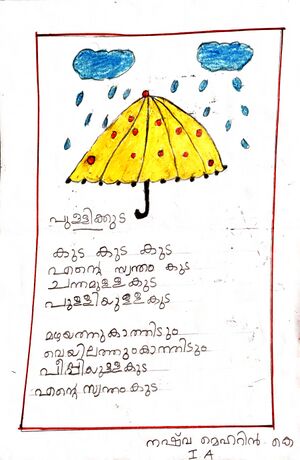 പുള്ളിക്കുട
കുട കുട കുട
എന്റെ സ്വന്തം കുട
ചന്തമുള്ളകുട
പുള്ളിയുള്ള കുട
മഴയത്തുകാത്തിടും
വെയിലത്തുംകാത്തിടും
പീപ്പിയുള്ളകുട
എന്റെ സ്വന്തം കുട
നഷ്‌വ മെഹറിൻ കെ
I A